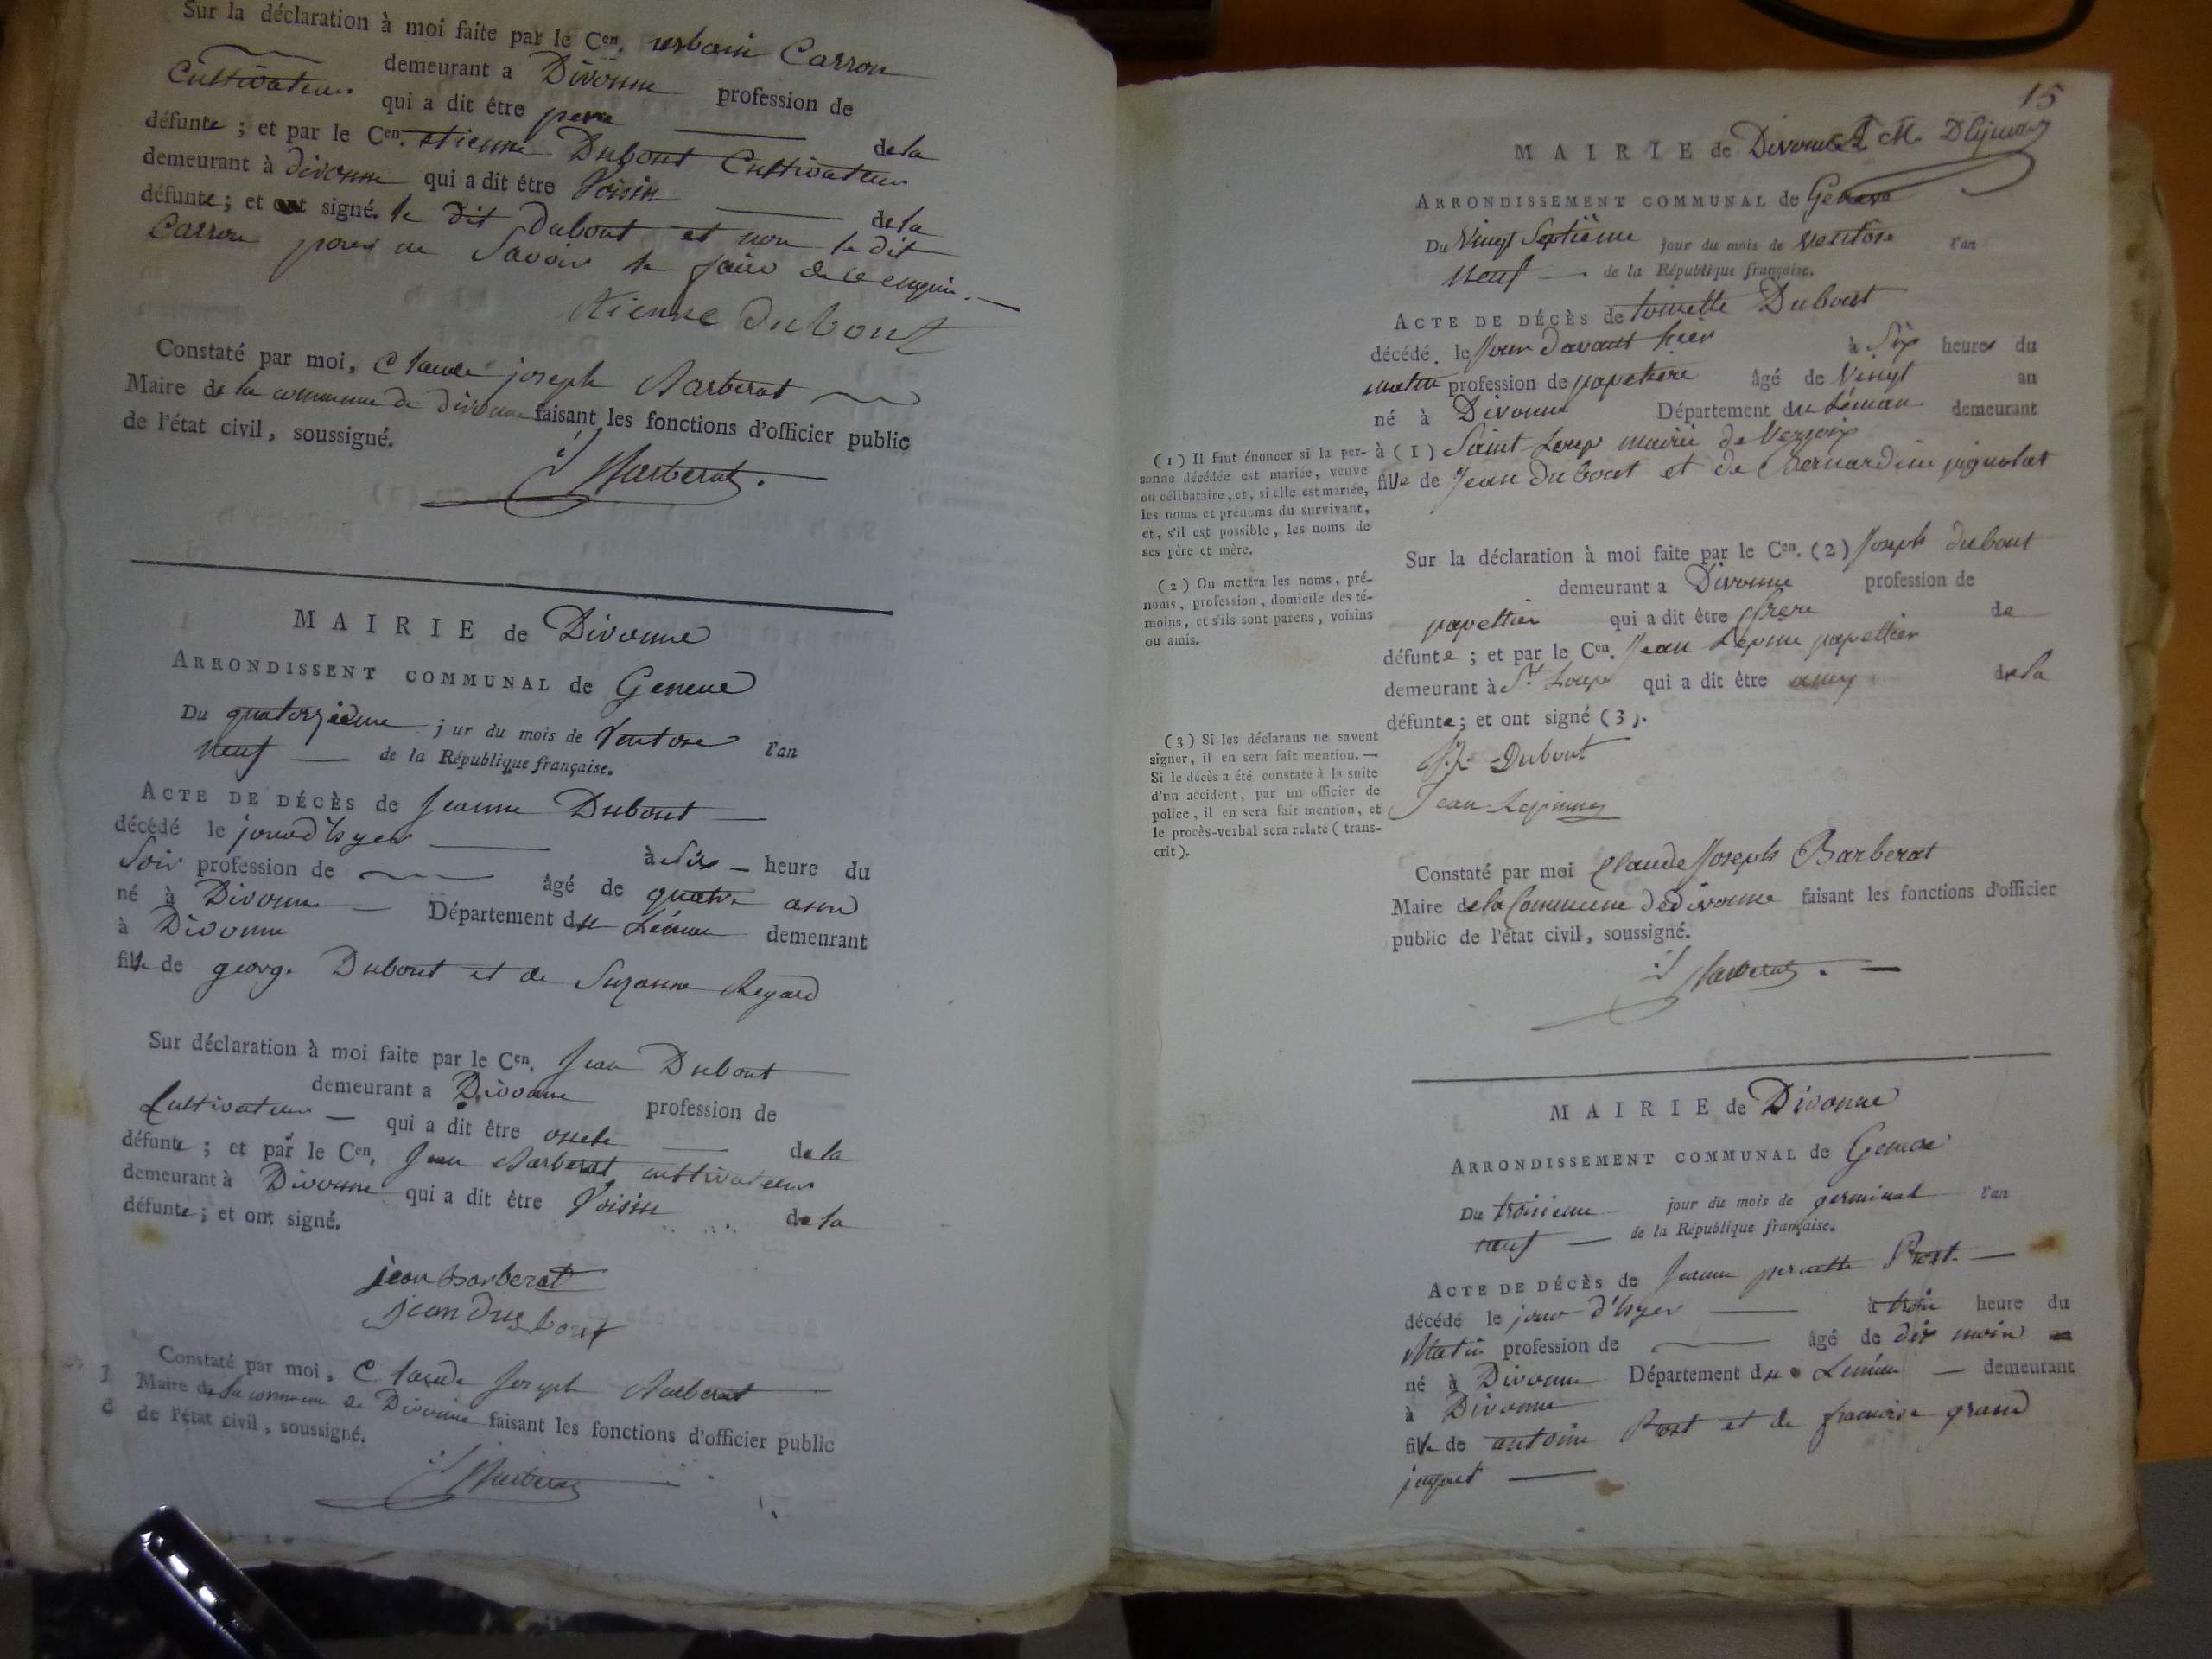 Sur la déclaration à moi faite par le Cen. urbain Carron
demeurant a Divonne profession de
Cultivateur qui a dit être pere de la
défunte ; et par le Cen. etienne Dubout Cultivateur
demeurant à divonne qui a dit être Voisin de la
défunte ; et ont signé. le dit Dubout et non le dit
Carron pour ne Savoir le faire de ce enquis.
etienne dubout
Constaté par moi, Claude joseph Barberat
Maire de la commune de divonne faisant les fonctions d'officier public
de l'état civil, soussigné.
Barberat.
MAIRIE de Divonne
ARRONDISSENT COMMUNAL de Geneve
Du quatorzieme j ur du mois de Ventose l'an
neuf de la République française.
ACTE DE DÉCÈS de Jeanne Dubout
décédé le jour d'hyer à Six heure du
Soir profession de âgé de quatre ans
né à Divonne Département du Léman demeurant
à Divonne
fille de george Dubout et de Suzanne Regard
Sur déclaration à moi faite par le Cen. Jean Dubout
demeurant a Divonne profession de
Cultivateur qui a dit être oncle de la
défunte ; et par le Cen. Jean Barberat cultivateur
demeurant à Divonne qui a dit être Voisin de la
défunte ; et ont signé.
jean Barberat
jean Dusbout
Constaté par moi, Claude Joseph Barberat
Maire de la commune de Divonne faisant les fonctions d'officier public
de l'état civil, soussigné.
Barberat
15
MAIRIE de Divonne
ARRONDISSEMENT COMMUNAL de Geneve
Du Vingt Septième jour du mois de Ventose l'an
neuf de la République française.
ACTE DE DÉCÈS de toinette Dubout
décédé. le Jour davant hier à Six heures du
matin profession de papetiere âgé de Vingt an
né à Divonne Département du Léman demeurant
à (1) Saint Loup mairie de Versoix
fille de Jean Dubout et de Bernardine
Sur la déclaration à moi faite par le Cen. (2) Joseph dubout
demeurant a Divonne profession de
papettier qui a dit être frere de
défunte ; et par le Cen. Jean Lepine papettier
demeurant à St. Loup qui a dit être amy de la
défunte ; et ont signé (3).
Dubout
Jean
(1) Il faut énoncer si la per-
sonne décédée est mariée, veuve
ou célibataire, et, si elle est mariée,
les noms et prénoms du survivant,
et, s'il est possible, les noms de
ses père et mère.
(2) On mettra les noms, pré-
noms, profession, domicile des té-
moins, et s'ils sont parens, voisins
ou amis.
(3) Si les déclarans ne savent
signer, il en sera fait mention. —
Si le décès a été constaté à la suite
d'un accident, par un officier de
police, il en sera fait mention, et
le procès-verbal sera relaté (trans-
crit).
Constaté par moi Claude Joseph Barberat
Maire de la Commune de divonne faisant les fonctions d'officier
public de l'état civil, soussigné.
Barberat.
MAIRIE de Divonne
ARRONDISSEMENT COMMUNAL de Geneve
Du troisieme jour du mois de germinal l'an
neuf de la République française.
ACTE DE DÉCÈS de Jeanne pernette Prost.
décédé le jour d'hyer à trois heure du
Matin profession de âgé de dix mois an
né à Divonne Département du Leman demeurant
à Divonne
fille de antoine Prost et de francoise grand
jaquet